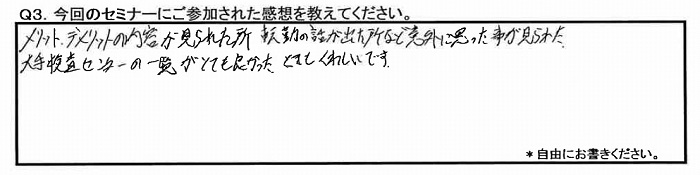 Q3. 今回のセミナーにご参加された感想を教えてください。
メリット、デメリットの内容が見られた所 転勤の話が出た所など意外に思った事が見られた
大手検査センターの一覧がとても良かった とてもくわしいです。
*自由にお書きください。